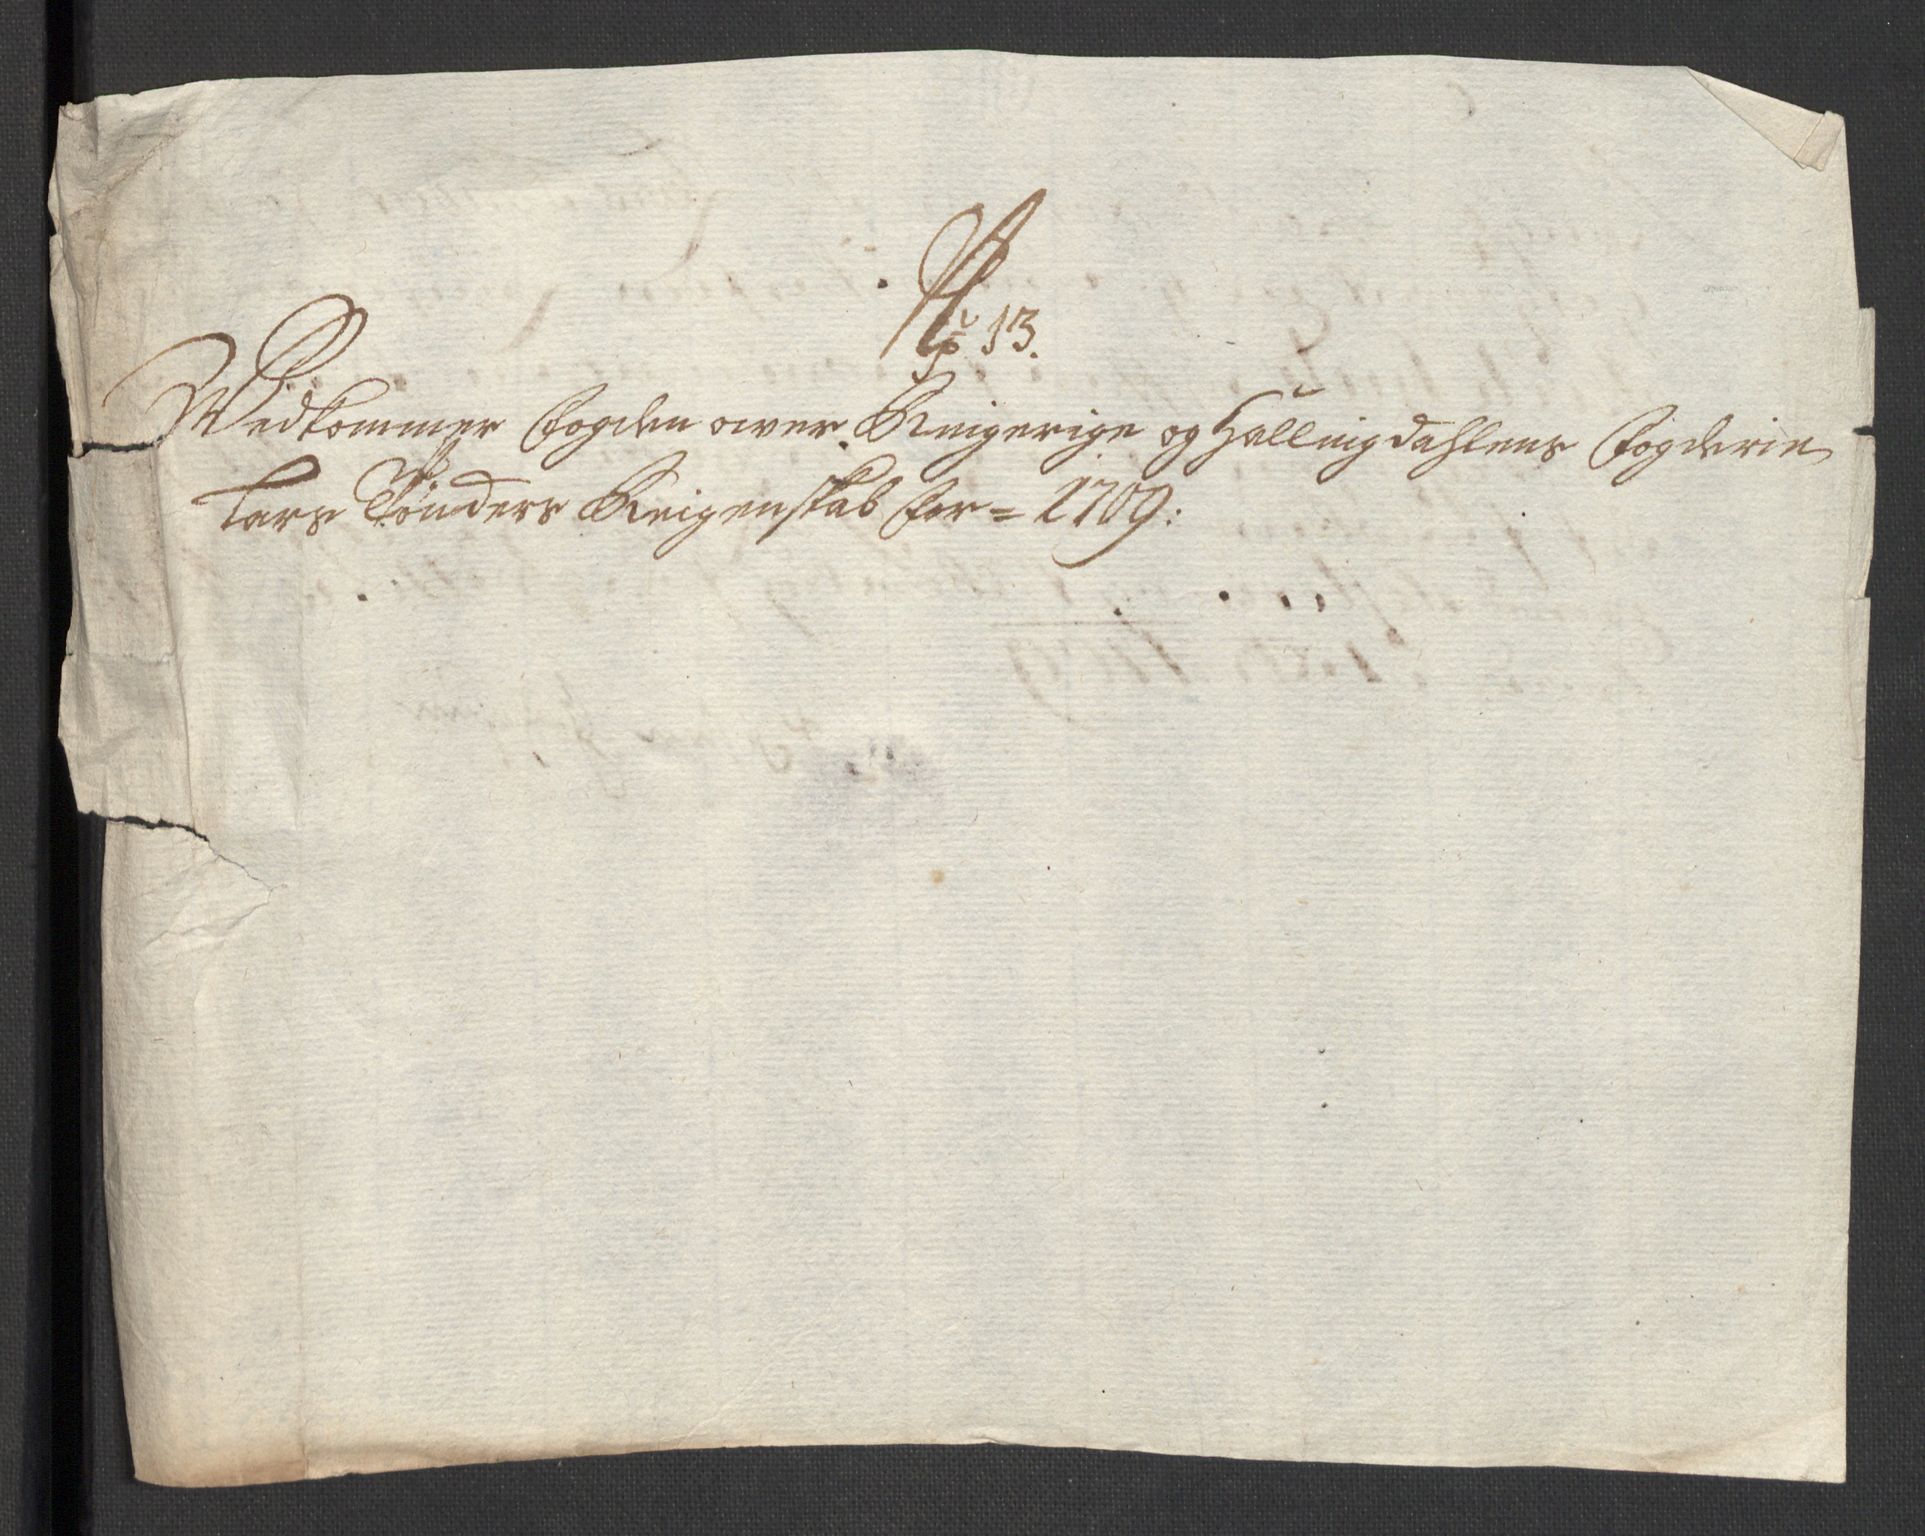 No 13.
Vedkommer Fogden over Ringerige og Hallingdahlens Fogderie
Lars Tønders Reigenskab for = 1709: